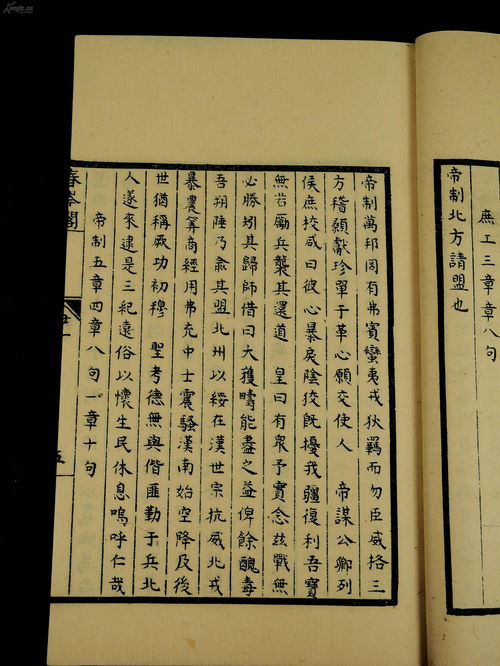 庶工三章章八句
帝制北方請盟也
帝制萬邦罔有弗賓蠻夷戎狄羈而勿臣威格三
方稽顙獻珍單于革心願交使人 帝謀公卿列
侯庶校咸曰彼心暴戾陰狡旣擾我疆復利吾寶
無若勵兵襲其還道 皇曰有衆予實念玆戰無
必勝矧其歸師借曰大獲疇能盡之益俾餘醜毒
吾朔陲乃肅其盟北州以綏在漢世宗抗威北戎
暴農筭商經用弗充中士震騷漢南始空降及後
世猶稱厥功初穆 聖考德無與偕匪勤于兵北
人遂來逮是三紀遠俗以懷生民休息嗚呼仁哉
帝制五章四章八句一章十句
春岑閣
五
Kongfz.cn